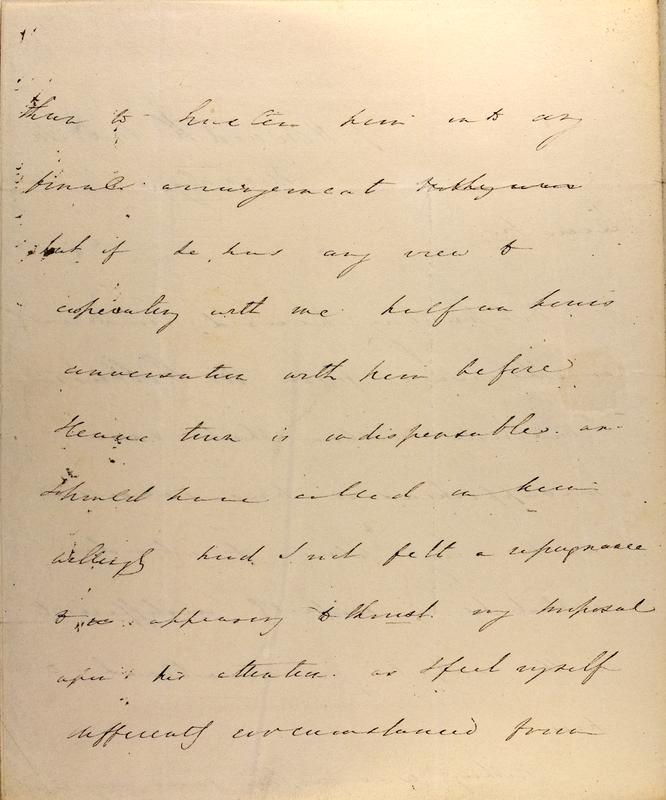 than to hasten him into any
final arrangement
but if he has any view to
cooperating with me half an hours
conversation with him before
I leave town is indispensable.
I should have called on him
willingly had I not felt a repugnance
to appearing to thrust my proposal
upon his attention. as I feel myself
differently circumstanced from